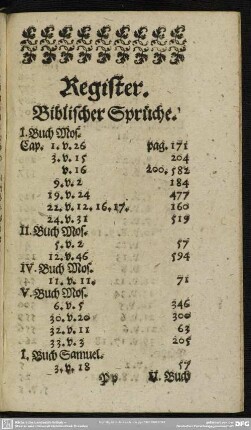 Register.
Biblischer Sprüche.
I. Buch Mos.
Cap. 1. v. 26 pag. 171
3. v. 15 204
v. 16 200. 582
9. v. 2 184
19. v. 24 477
22. v. 12. 16. 17. 160
24. v. 31 519
II. Buch Mos.
5. v. 2 57
12. v. 46 594
IV. Buch Mos.
11. v. 11. 71
V. Buch Mos.
6. v. 5 346
30. v. 20 300
32. v. 11 63
33. v. 3 205
I. Buch Samuel.
3. v. 18 57
Pp II. Buch